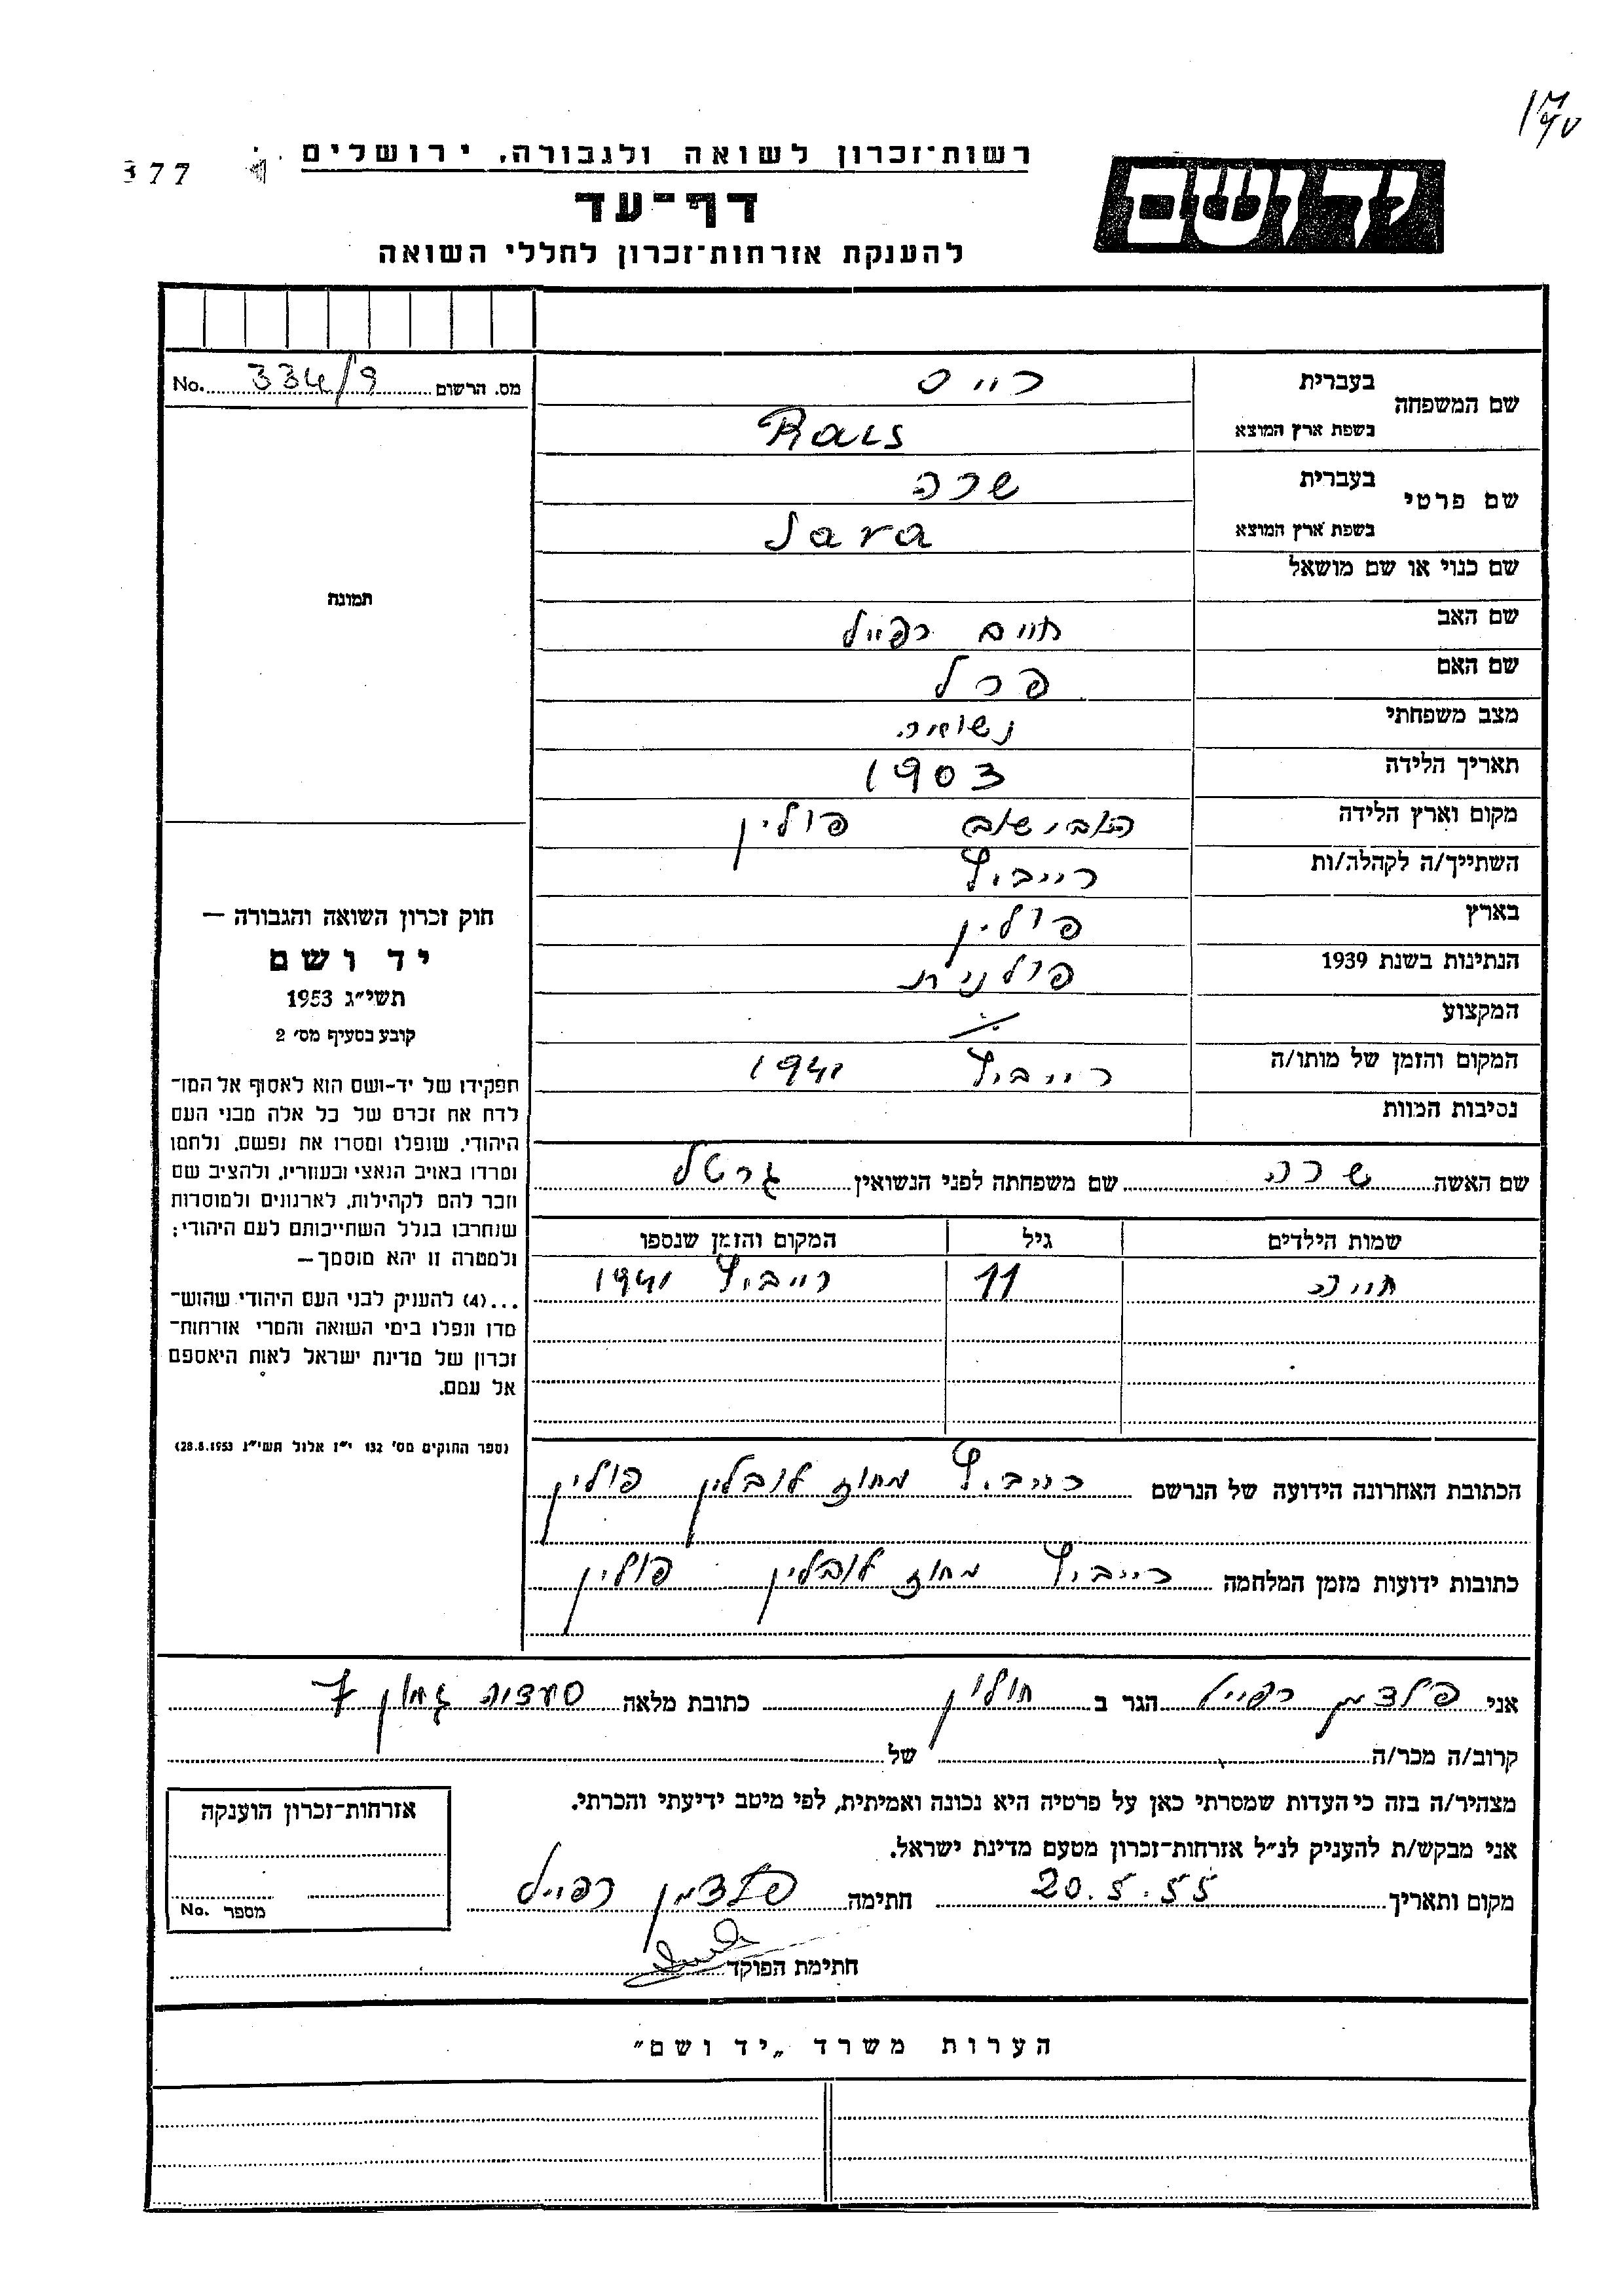 רשות־זכרון לשואה ולגבורה, ירושלים
377
דף־עד
להענקת אזרחות־זכרון לחללי השואה
יד ושם
מס. הרשום 334/9 No.
שם המשפחה
בעברית רייס
בשפת ארץ המוצא Rais
שם פרטי
בעברית שרה
בשפת ארץ המוצא Sara
שם כנוי או שם מושאל
תמונה
שם האב חיים רפייל
שם האם פרל
מצב משפחתי נשואה
תאריך הלידה 1903
מקום וארץ הלידה פולין
השתייך/ה לקהלה/ות רייביץ
בארץ פולין
הנתינות בשנת 1939 פולנית
המקצוע
המקום והזמן של מותו/ה רייביץ 1941
נסיבות המוות
שם האשה שרה שם משפחתה לפני הנשואין גרטל
שמות הילדים גיל המקום והזמן שנספו
חיינה 11 רייביץ 1941
הכתובת האחרונה הידועה של הנרשם רייביץ מחוז לובלין פולין
כתובות ידועות מזמן המלחמה רייביץ מחוז לובלין פולין
חוק זכרון השואה והגבורה —
יד ושם
תשי״ג 1953
קובע בסעיף מס׳ 2
תפקידו של יד-ושם הוא לאסוף אל המו־
לדת את זכרם של כל אלה מבני העם
היהודי, שנפלו ומסרו את נפשם, נלחמו
ומרדו באויב הנאצי ובעוזריו, ולהציב שם
וזכר להם לקהילות, לארגונים ולמוסדות
שנחרבו בגלל השתייכותם לעם היהודי;
ולמטרה זו יהא מוסמך—
...(4) להעניק לבני העם היהודי שהוש־
מדו ונפלו בימי השואה והמרי אזרחות־
זכרון של מדינת ישראל לאות היאספם
אל עמם.
(ספר החוקים מס׳ 132 י״ז אלול תשי״ג 28.8.1953)
אני פלדמן רפייל הגר ב חולון כתובת מלאה סעדיה גאון 7
קרוב/ה מכר/ה של
מצהיר/ה בזה כי העדות שמסרתי כאן על פרטיה היא נכונה ואמיתית, לפי מיטב ידיעתי והכרתי.
אני מבקש/ת להעניק לנ״ל אזרחות־זכרון מטעם מדינת ישראל.
מקום ותאריך 20.5.55 חתימה פלדמן רפייל
חתימת הפוקד
אזרחות־זכרון הוענקה
מספר No.
הערות משרד „יד ושם״